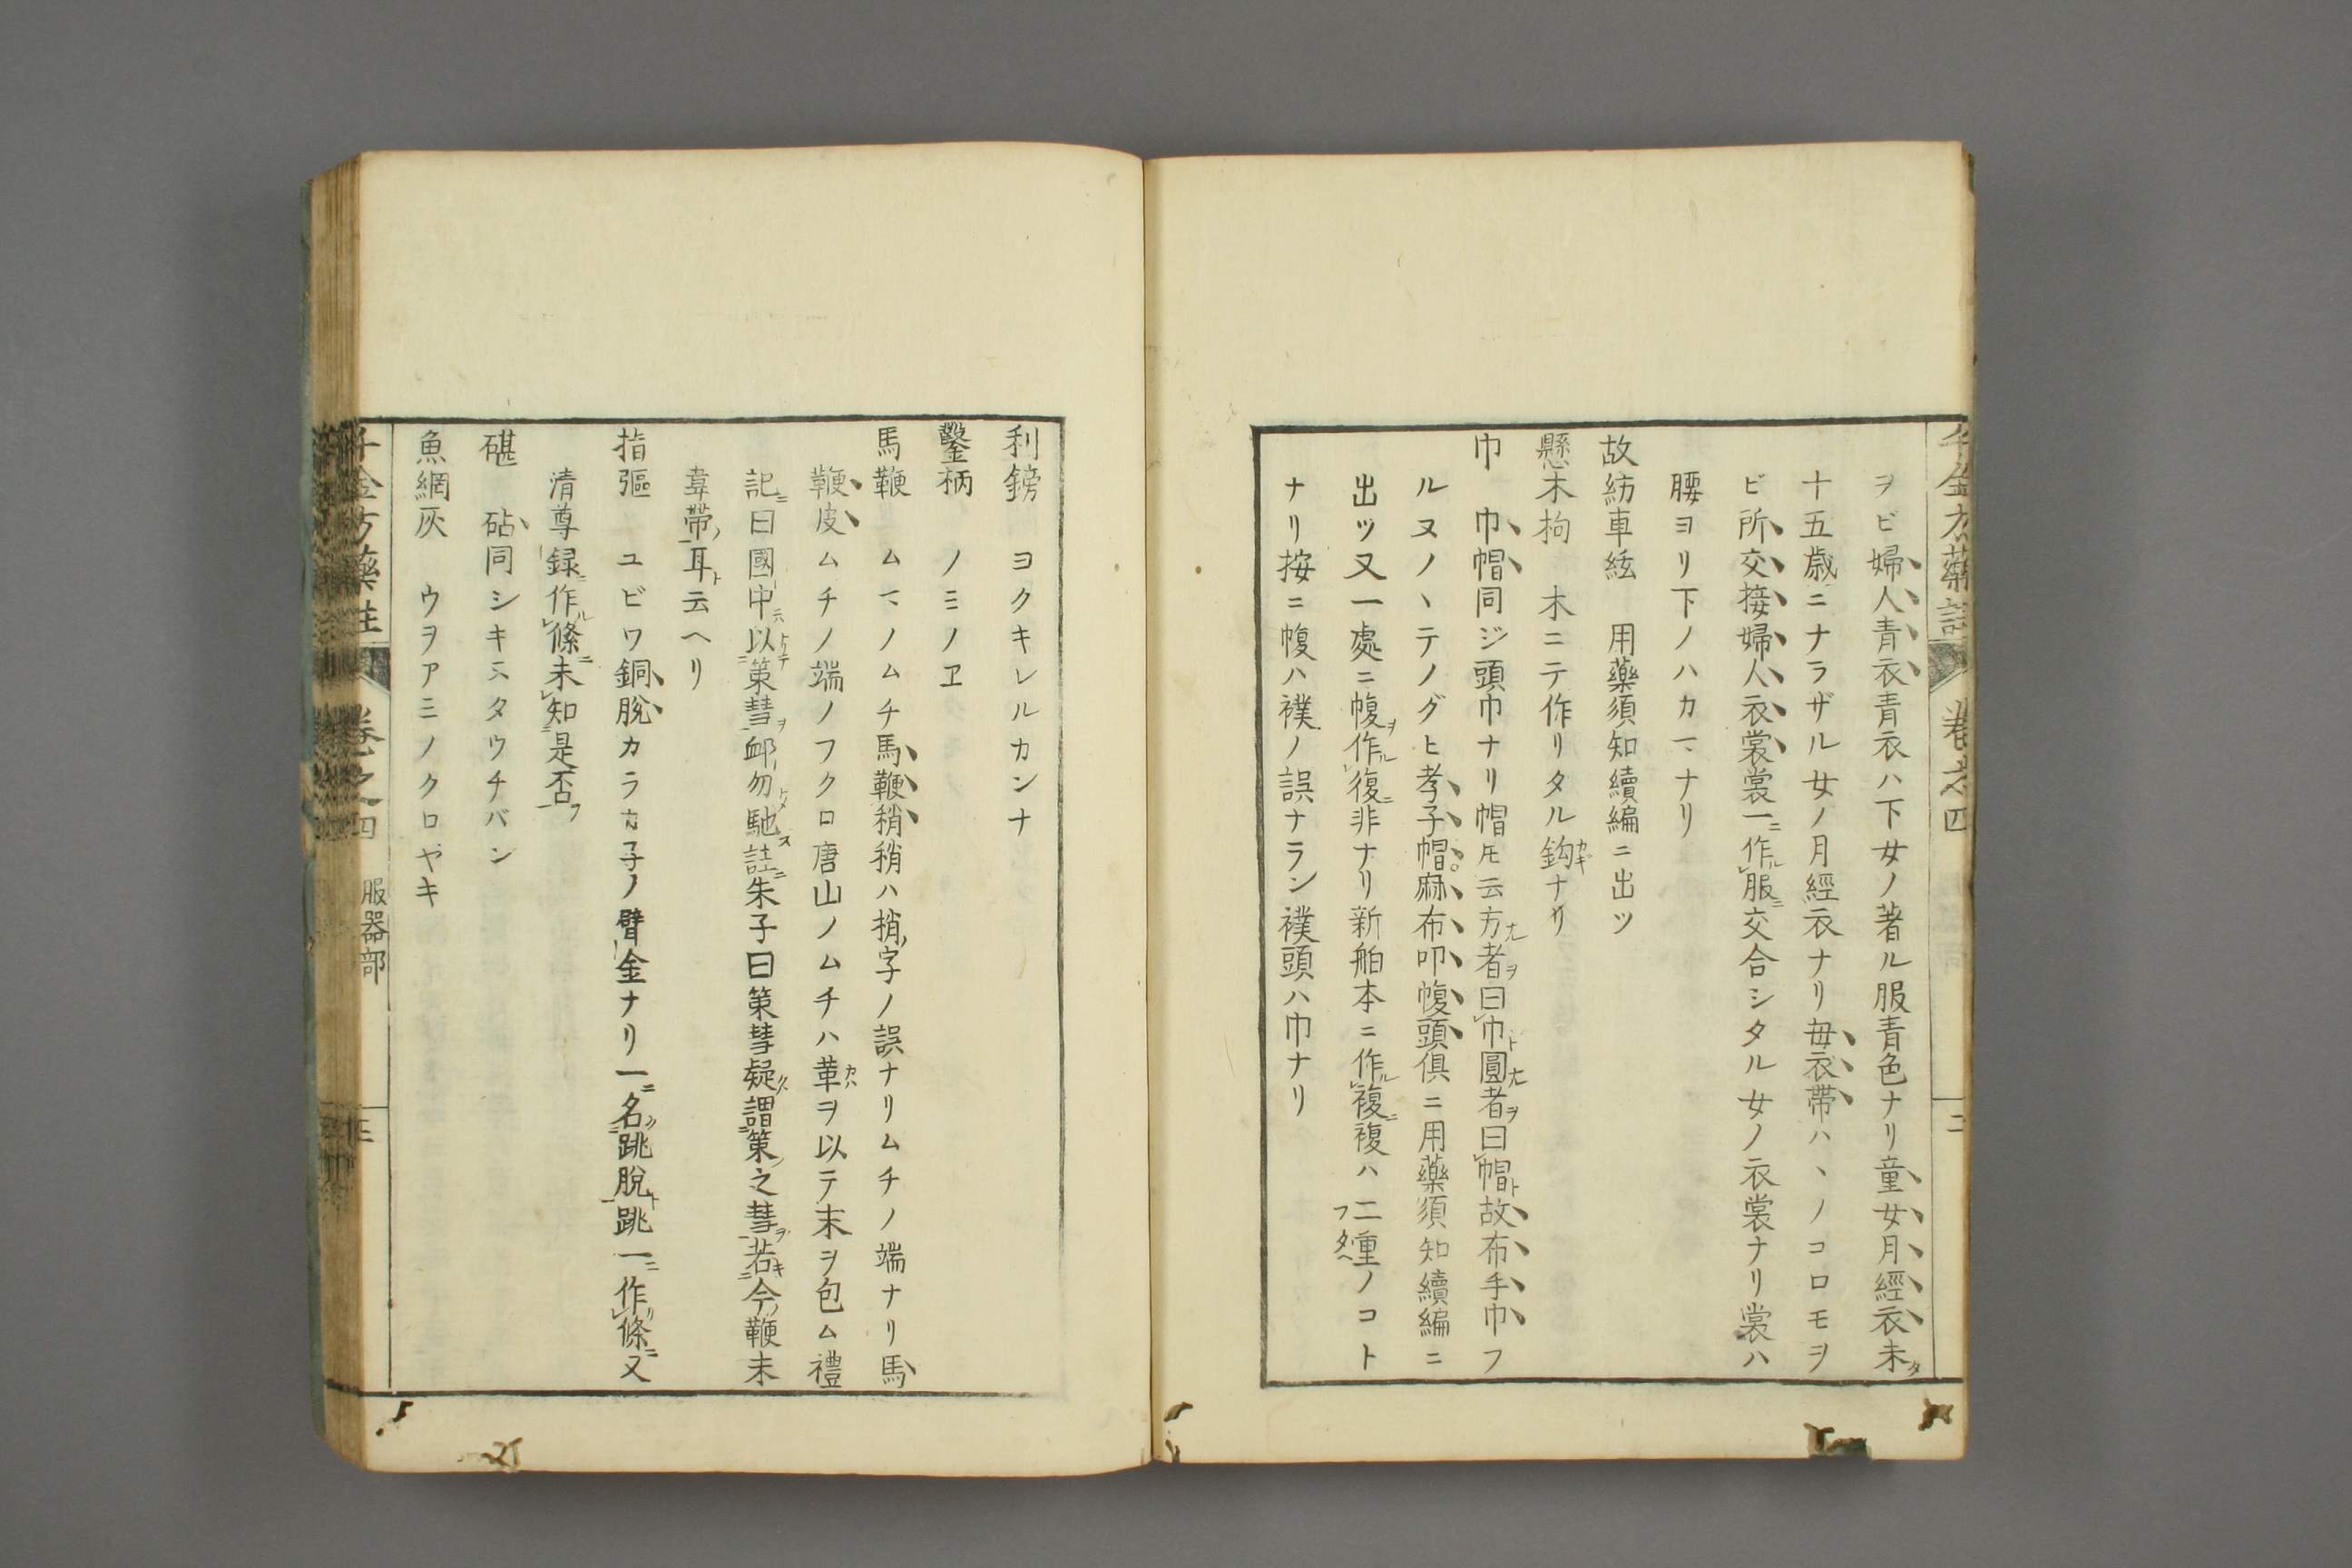 ヲビ婦人青衣青衣ハ下女ノ著ル服青色ナリ童女月經衣未タ
十五歳ニナラザル女ノ月經衣ナリ毎衣帶ハヽノコロモヲ
ビ所交接婦人衣裳裳一ニ作ル服ニ交合シタル女ノ衣裳ナリ裳ハ
腰ヨリ下ノハカマナリ
故紡車絃　用藥須知續編ニ出ツ
懸木拘　木ニテ作リタル鈎カギナリ
巾　巾帽同ジ頭巾ナリ帽𪜈云方ナル者ヲ曰巾ト圓ナル者ヲ曰帽ト故布手巾フ
ルヌノヽテノグヒ孝子帽麻布叩㡤頭俱ニ用藥須知續編ニ
出ツ又一處ニ㡤ヲ作ル復ニ非ナリ新舶本ニ作ル複ニ複ハ二重フタヘノコト
ナリ按ニ㡤ハ襆ノ誤ナラン襆頭ハ巾ナリ
利鎊　ヨクキレルカンナ
鑿柄　ノミノヱ
馬鞭　ムマノムチ馬鞭稍稍ハ梢ノ字ノ誤ナリムチノ端ナリ馬
鞭皮ムチノ端ノフクロ唐山ノムチハ革カハヲ以テ末ヲ包ム禮
記ニ曰國中ニ以策彗ヲ䘏勿馳註ニ朱子曰策彗疑クハ謂策ノ之彗ヲ若キ今ノ鞭末
韋帶ノ耳ト云ヘリ
指彄　ユビワ銅脫カラカ子ノ臂金ナリ一ニ名ク跳脫ト跳一ニ作リ條ニ又
清尊録ニ作ル條ニ未知是否フ
碪　砧同シキヌタウチバン
魚網灰　ウヲアミノクロヤキ
千金方藥註　卷之四　服器部　三